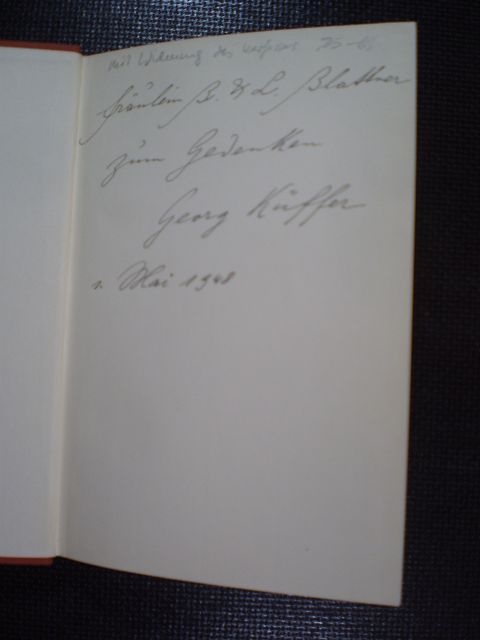 mit Widmung des Verfassers 25-
Fräulein B. & L. Blattner
zum Gedenken
Georg Küffer
Mai 1948